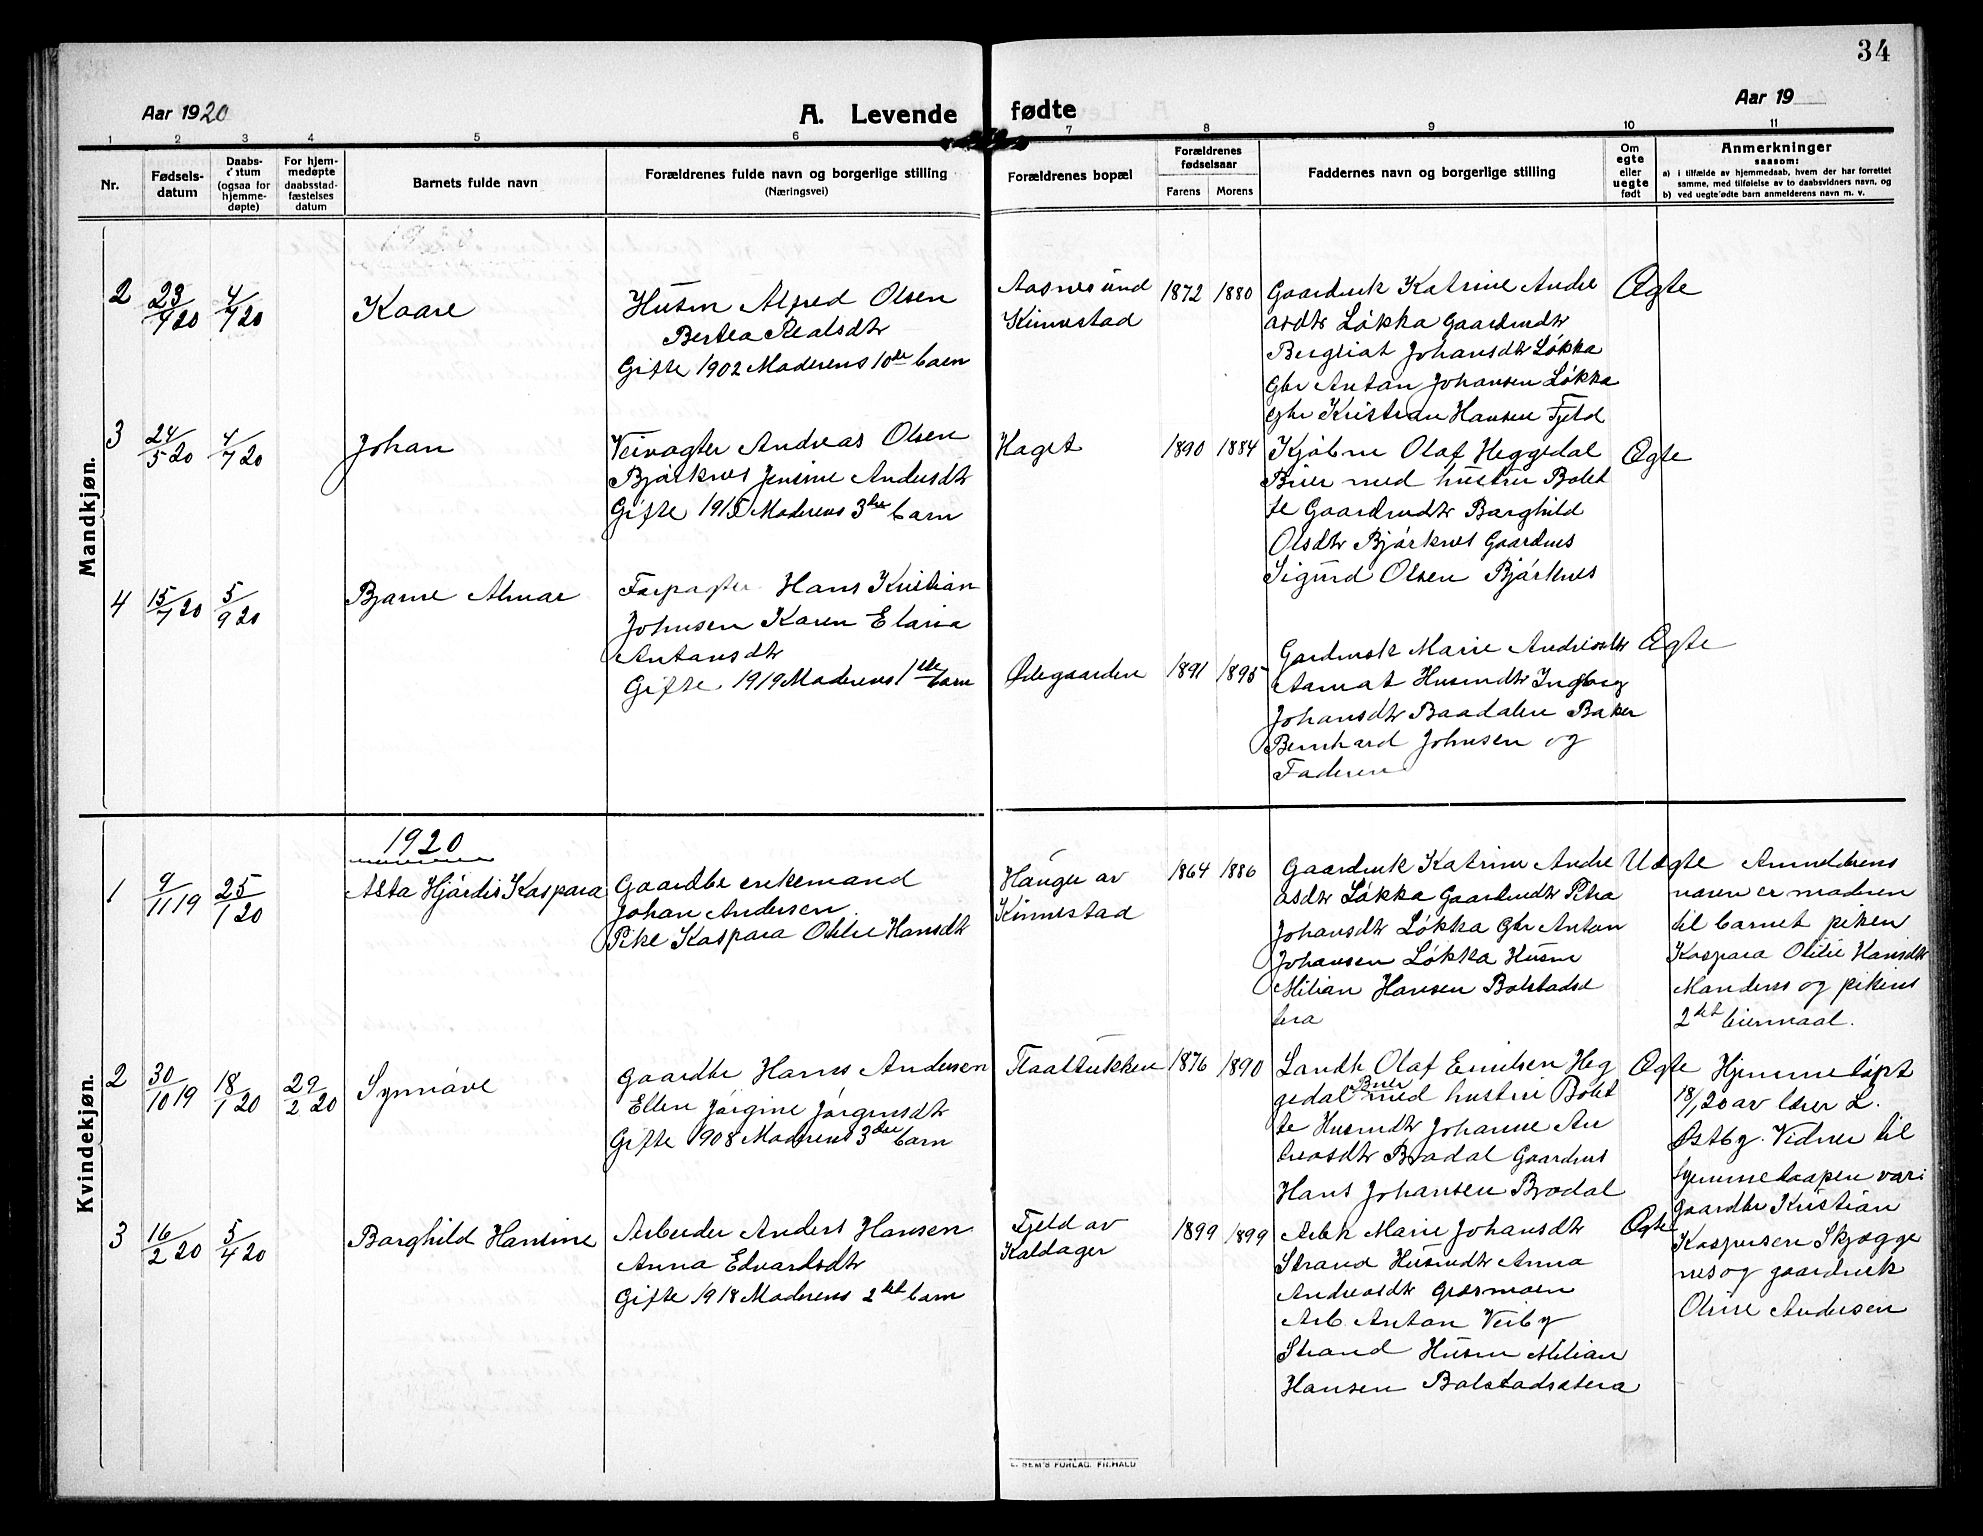 34
Aar 1920
A. Levende fødte
Aar 19
1 2 3 4 5 6 7 8 9 10 11
Nr.
Fødsels-
datum
Daabs-
datum
(ogsaa for
hjemme-
døpte)
For hjem-
medøpte
daabsstad-
fæstelses
datum
Barnets fulde navn
Forældrenes fulde navn og borgerlige stilling
(Næringsvei)
Forældrenes bopæl
Forældrenes
fødselsaar
Farens Morens
Faddernes navn og borgerlige stilling
Om
egte
eller
uegte
født
Anmerkninger
saasom:
a) i tilfælde av hjemmedaab, hvem der har forrettet
samme, med tilføielse av to daabsvidners navn, og
b) ved uegte fødte barn anmelderens navn m. v.
Mandkjøn.
2
23/4 20
4/7 20
Kaare
Husm Alfred Olsen
Bertea
Gifte 1902 Moderens 10de barn
Aasnesund
Kinnestad
1872 1880
Gaardmsk Katrine Andre
asdtr Løkka Gaardmdtr
Bergliot Johansdtr Løkka
Gbr Anton Johansen Løkka
gbr Kristian Hansen Fjeld
Ægte
3
24/5 20
4/7 20
Johan
Veivogter Andreas Olsen
Bjørknes Jensine Andersdtr
Gifte 1915 Moderens 3die barn
Haget
1890 1884
Kjøbm Olaf Heggedal
Buer med hustru Bolet
te Gaardmdtr Borghild
Olsdtr Bjørknes Gaardms
Sigurd Olsen Bjørknes
Ægte
4
15/7 20
5/9 20
Bjarne Almar
Forpagter Hans Kristian
Johnsen Karen Elaria
Antonsdtr
Gifte 1919 Moderens 1ste barn
Ødegaarden
1891 1895
Gardmsk Marie Andreasdtr
Husmdtr Ingborg
Johansdtr Baadalen Baker
Bernhard Johnsen og
Faderen
Ægte
Kvindekjøn.
1920
1
9/11 19
25/1 20
Asta Hjørdis Kaspara
Gaardbr enkemand
Johan Andersen
Pike Kaspara Otilie Hansdtr
Hauger av
Kinnestad
1864 1886
Gaardmsk Katrine Andre
asdtr Løkka Gaardmdtr Petra
Johansdtr Løkka Gbr Anton
Johansen Løkka Husm
Milian Hansen Bolstadsæ
tra
Uægte
Anmelderens
navn er modren
til barnet piken
Kaspara Otilie Hansdtr
Mandens og pikens
2det leiermaal.
2
30/10 19
18/1 20
29/2 20
Synnøve
Gaardbr Hans Andersen
Ellen Jørgine Jørgensdtr
Gifte 1908 Moderens 3die barn
Taaltukken
1876 1890
Landh Olaf Emilsen Heg
gedal Buer med hustru Bolet
te Husmdtr Johanne An
dreasdtr Brodal Gaardms
Hans Johansen Brodal
Ægte
Hjemmedøpt
18/1 20 av lærer L.
Østby. Vidner til
hjemmedaapen var:
Gaardbr Kristian
Kaspersen Skjægge
nes og gaardmsk
Oline Andersen
3
16/2 20
5/4 20
Borghild Hansine
Arbeider Anders Hansen
Anna Edvardsdtr
Gifte 1918 Moderens 2det barn
Fjeld av
Kaldager
1899 1899
Arbk Marie Johansdtr
Strand Husmdtr Anna
Andreasdtr Græsmoen
Arb. Anton Veiby
Strand Husm Milian
Hansen Bolstadsætra
Ægte
E. SEM'S FORLAG, FR.HALD